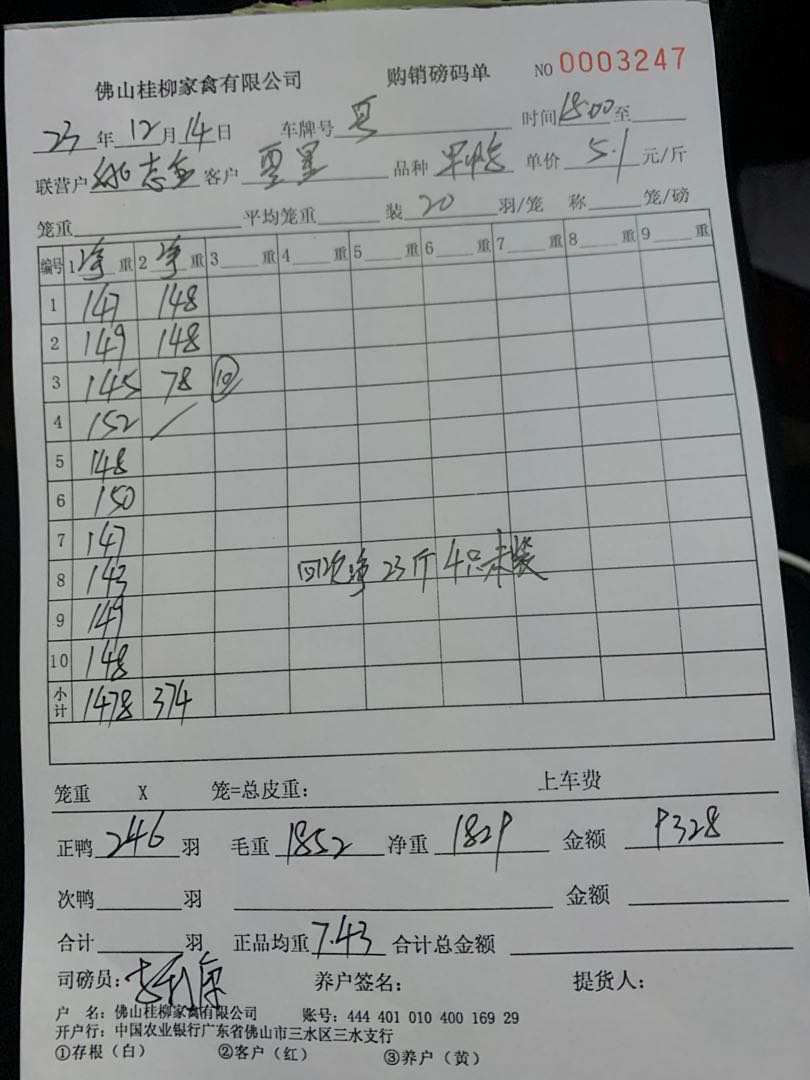 佛山桂柳家禽有限公司 购销磅码单 NO 0003247
23年12月14日 车牌号 时间18:00至
联营户 志 客户 品种 单价5.1元/斤
笼重 平均笼重 装20羽/笼 称 笼/磅
编号 1净重 2净重 3 重 4 重 5 重 6 重 7 重 8 重 9 重
1 147 148
2 149 148
3 145 78 10
4 152 /
5 148
6 150
7 147
8 143 回次净23斤4只未袋
9 149
10 148
小计 1478 374
笼重 X 笼=总皮重: 上车费
正鸭246羽 毛重1852 净重1829 金额9328
次鸭 羽 金额
合计 羽 正品均重7.43 合计总金额
司磅员: 养户签名: 提货人:
户 名: 佛山桂柳家禽有限公司 账号: 444 401 010 400 169 29
开户行: 中国农业银行广东省佛山市三水区三水支行
①存根（白） ②客户（红） ③养户（黄）